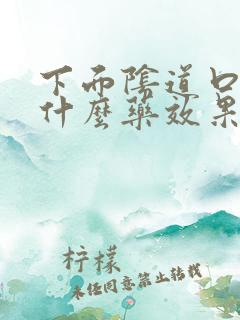 下而陰道口
什麼藥效果
柠檬
未经同意禁止转载